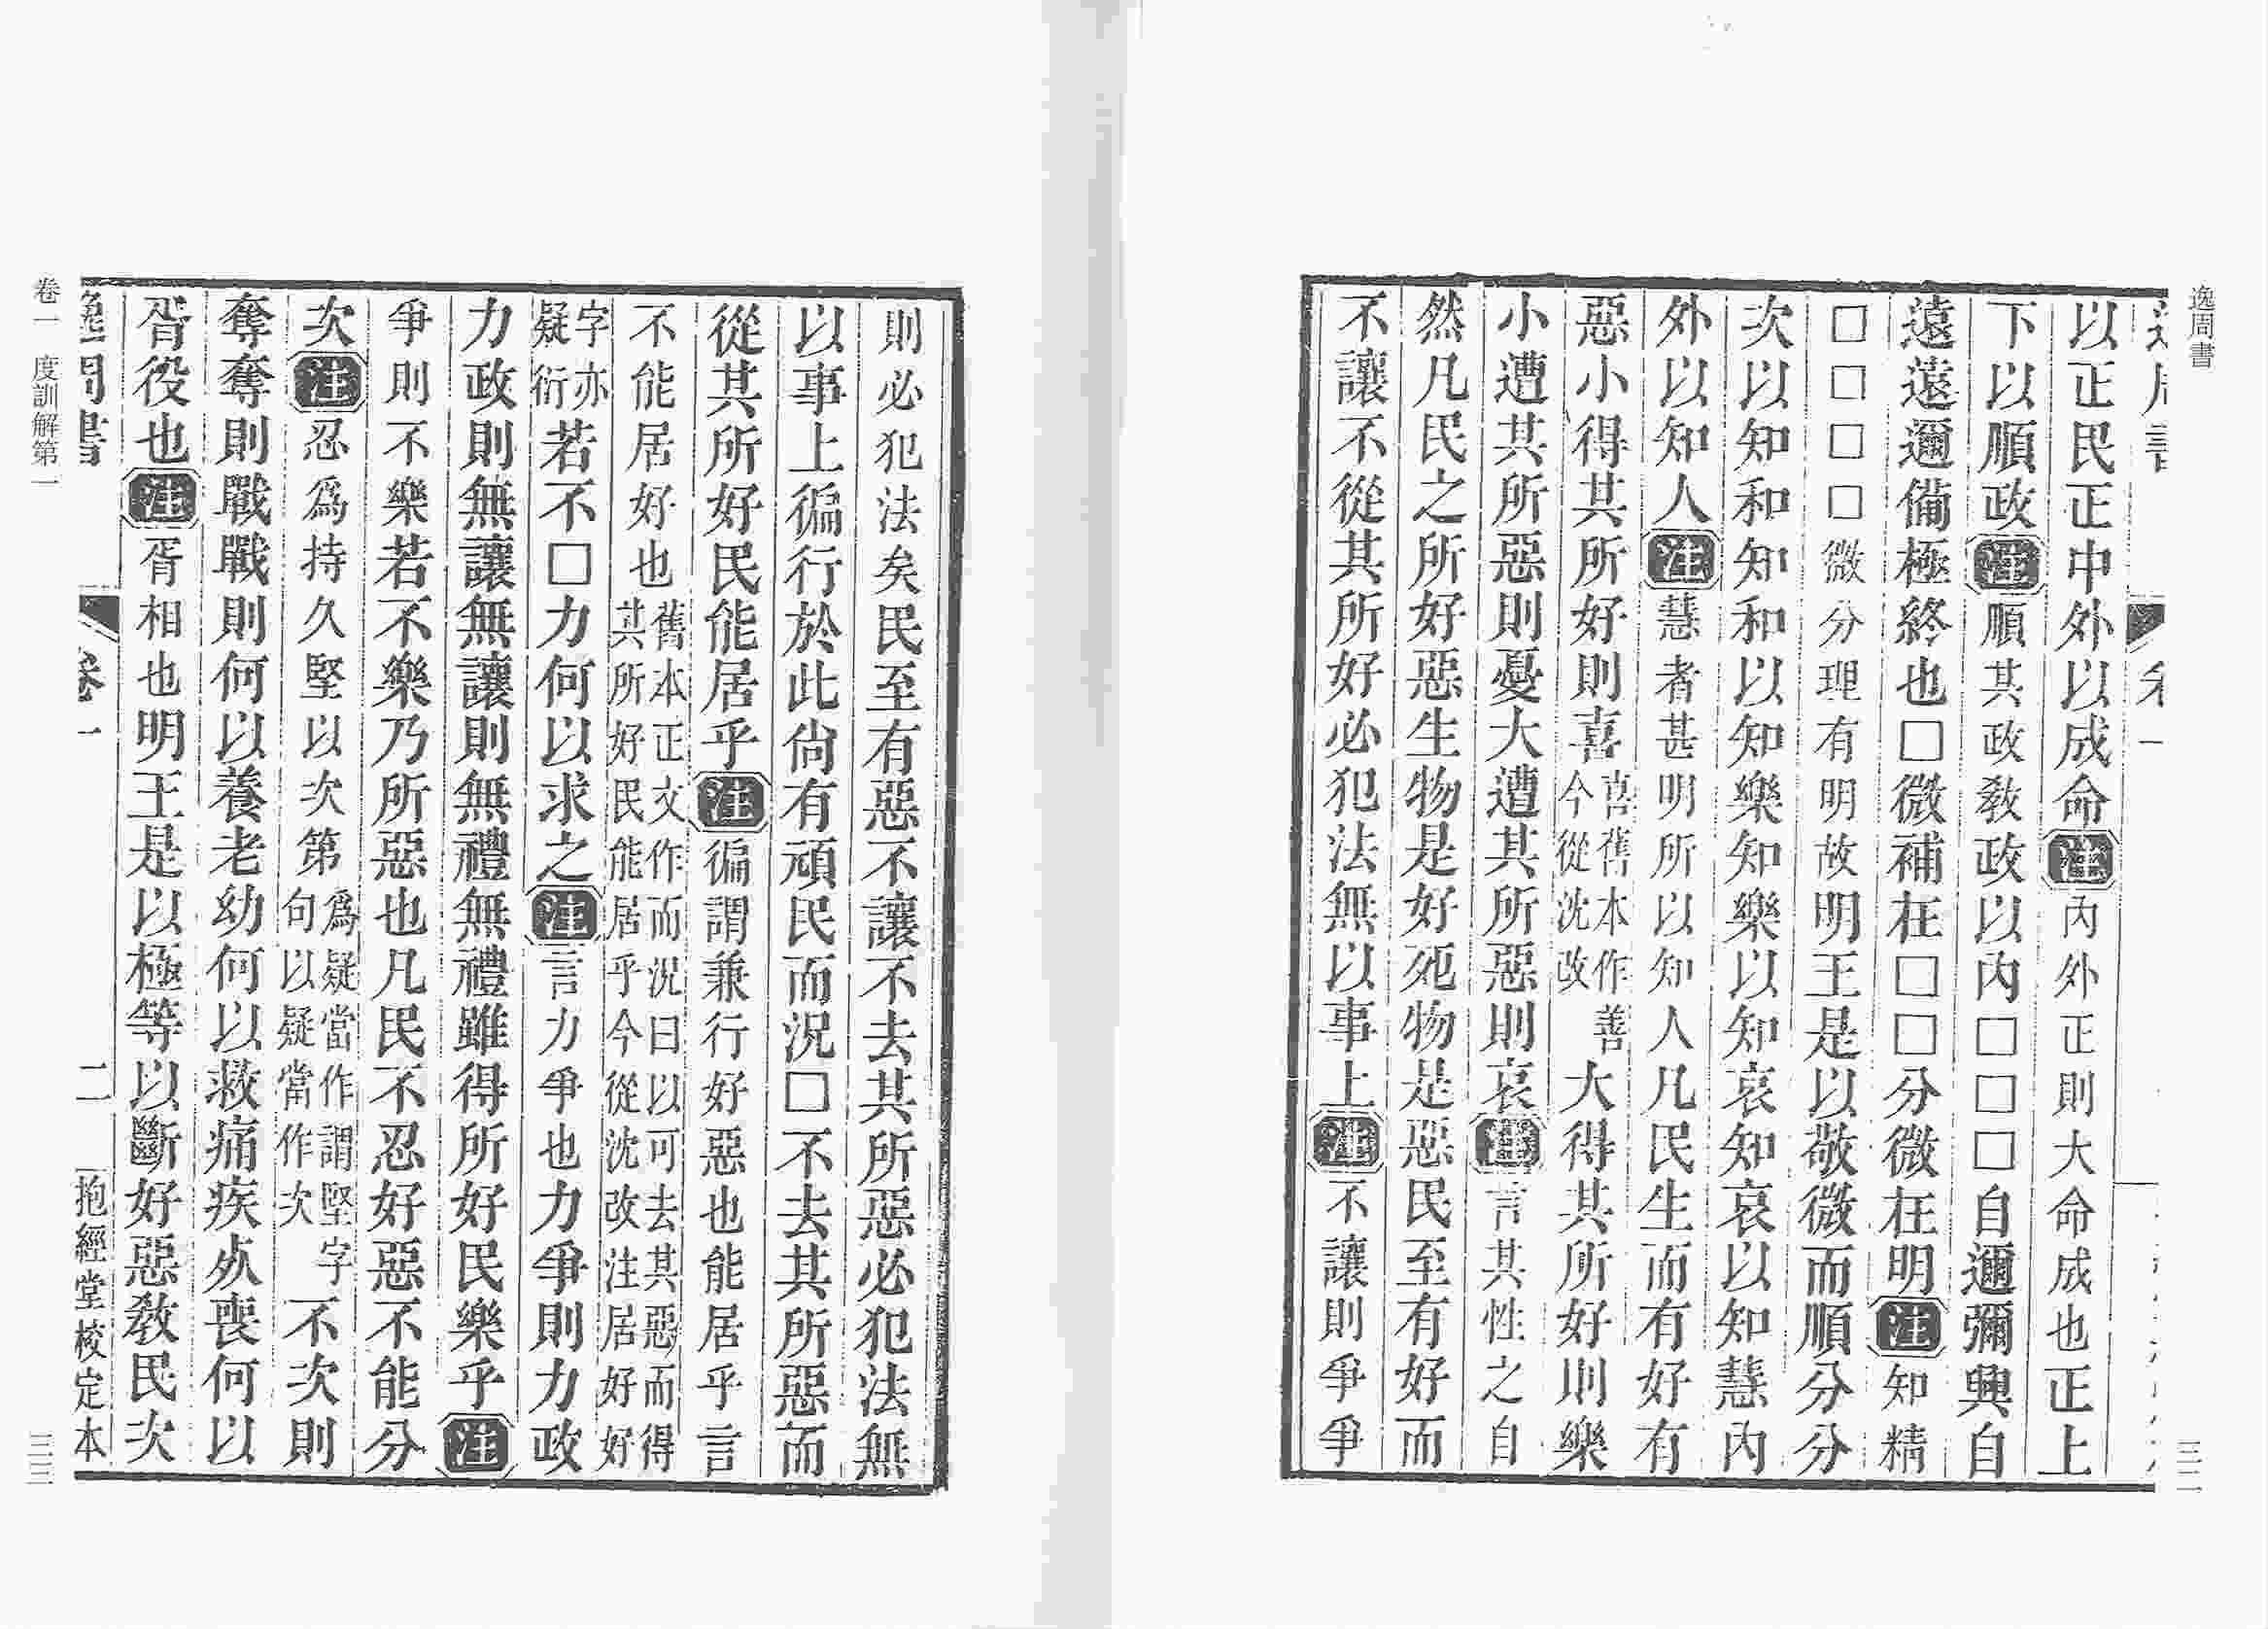 逸周書
三二
以正民正中外以成命注內外正則大命成也正上
下以順政注順其政敎政以內□□□自邇彌興自
遠遠邇備極終也□微補在□□分微在明注知精
□□□□微分理有明故明王是以敬微而順分分
次以知和知和以知樂知樂以知哀知哀以知慧內
外以知人注慧者甚明所以知人凡民生而有好有
惡小得其所好則喜喜舊本作善今從沈改大得其所好則樂
小遭其所惡則憂大遭其所惡則哀注言其性之自
然凡民之所好惡生物是好死物是惡民至有好而
不讓不從其所好必犯法無以事上注不讓則爭爭
則必犯法矣民至有惡不讓不去其所惡必犯法無
以事上徧行於此尙有頑民而況□不去其所惡而
從其所好民能居乎注徧謂兼行好惡也能居乎言
不能居好也舊本正文作而況曰以可去其惡而得其所好民能居乎今從沈改注居好好
字亦疑衍若不□力何以求之注言力爭也力爭則力政
力政則無讓無讓則無禮無禮雖得所好民樂乎注
爭則不樂若不樂乃所惡也凡民不忍好惡不能分
次注忍爲持久堅以次第爲疑當作謂堅字句以疑當作次不次則
奪奪則戰戰則何以養老幼何以救痛疾死喪何以
胥役也注胥相也明王是以極等以斷好惡敎民次
逸周書 卷一 二 抱經堂校定本
卷一 度訓解第一
三三